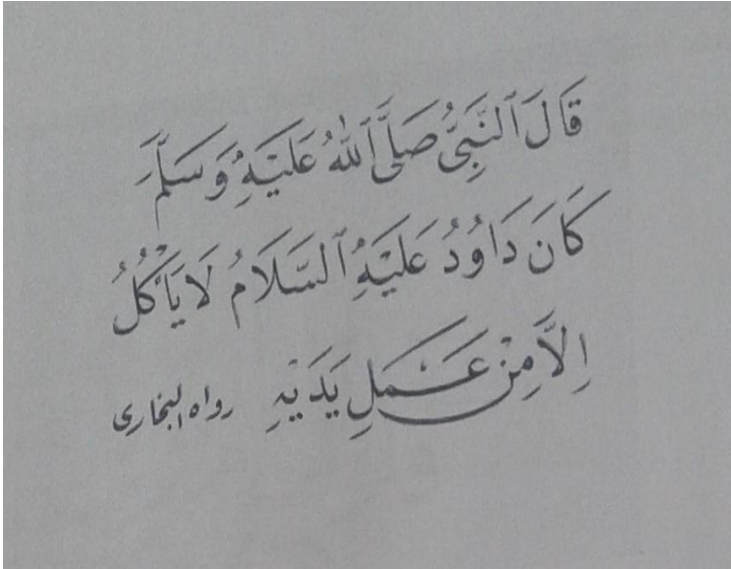 قَالَ ٱلنَّبِيُّ صَلَّى ٱللّٰهُ عَلَيْهِ وَسَلَّمَ
كَانَ دَاوُدُ عَلَيْهِ ٱلسَّلَامُ لَا يَأْكُلُ
اِلَّا مِنْ عَمَلِ يَدَيْهِ رواه البخاري